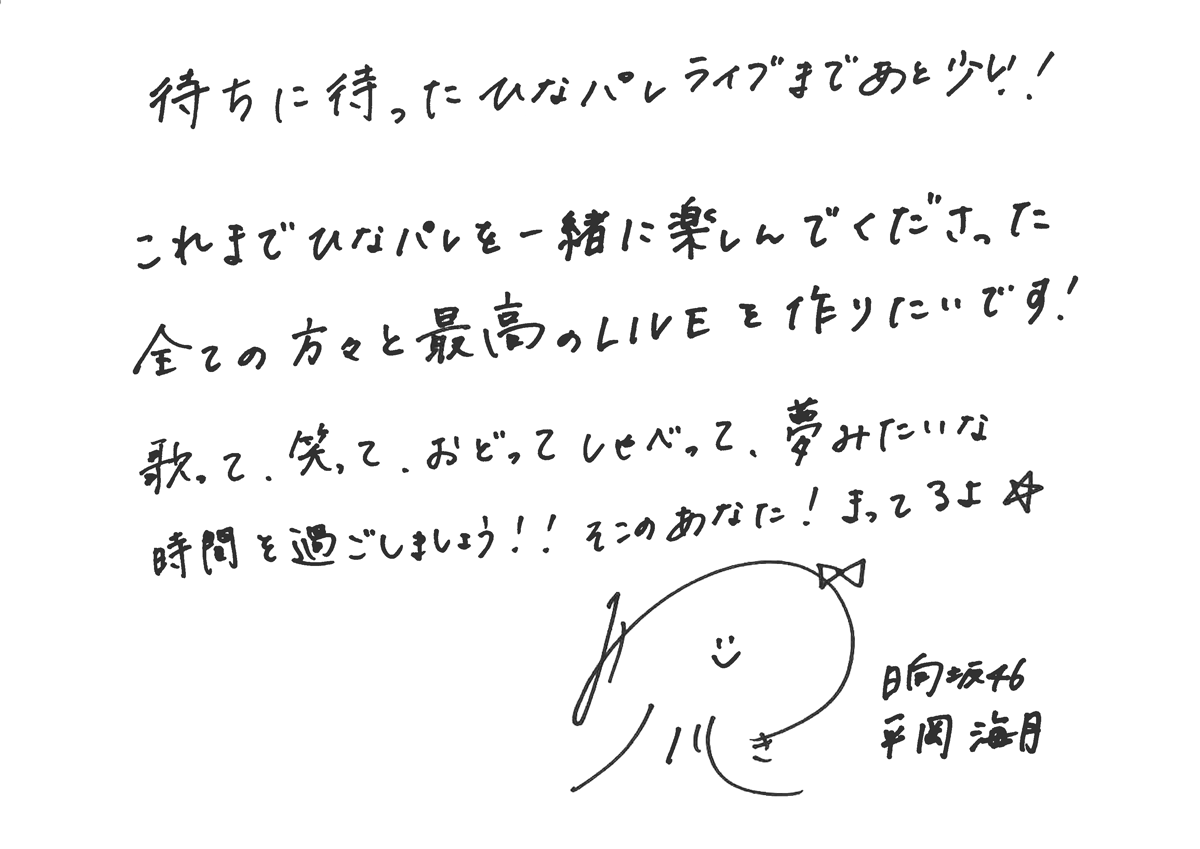 待ちに待ったひなパレライブまであと少し!!
これまでひなパレを一緒に楽しんでくださった
全ての方々と最高のLIVEを作りたいです!
歌って、笑って、おどってしゃべって、夢みたいな
時間を過ごしましょう!!そこのあなた!まってるよ☆
き
日向坂46
平岡海月